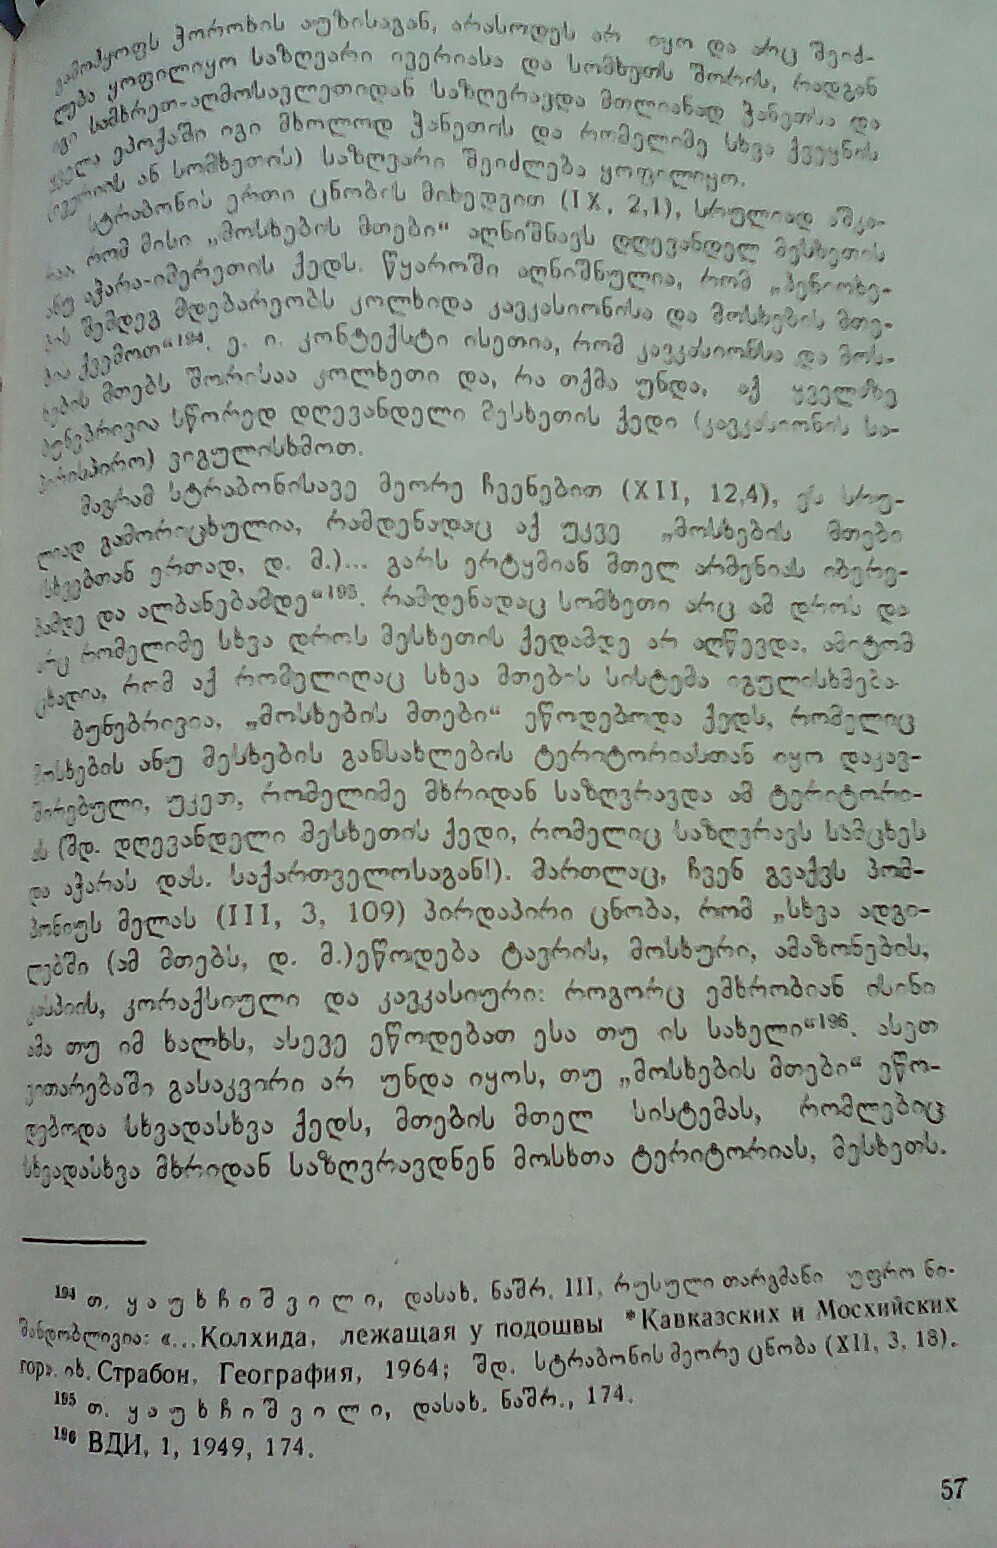 გამოჰყოფს ჭოროხის აუზისაგან, არასოდეს არ იყო და არც შეიძ-
ლება ყოფილიყო საზღვარი ივერიასა და სომხეთს შორის, რადგან
იგი სამხრეთ-აღმოსავლეთიდან საზღვრავდა მთლიანად ჭანეთსა და
ყველა ეპოქაში იგი მხოლოდ ჭანეთის და რომელიმე სხვა ქვეყნის
(ივერიის ან სომხეთის) საზღვარი შეიძლება ყოფილიყო.
სტრაბონის ერთი ცნობის მიხედვით (IX, 2,1), სრულიად აშკა-
რაა, რომ მისი „მოსხების მთები“ აღნიშნავს დღევანდელ მესხეთის
ანუ აჭარა-იმერეთის ქედს. წყაროში აღნიშნულია, რომ „ჰენიოხე-
ბის შემდეგ მდებარეობს კოლხიდა კავკასიონისა და მოსხების მთე-
ბის ქვემოთ“¹⁹⁴, ე. ი. კონტექსტი ისეთია, რომ კავკასიონსა და მოს-
ხების მთებს შორისაა კოლხეთი და, რა თქმა უნდა, აქ ყველაზე
ბუნებრივია სწორედ დღევანდელი მესხეთის ქედი (კავკასიონის სა-
პირისპირო) ვიგულისხმოთ.
მაგრამ სტრაბონისავე მეორე ჩვენებით (XII, 12,4), ეს სრუ-
ლიად გამორიცხულია, რამდენადაც აქ უკვე „მოსხების მთები
(სხვებთან ერთად, დ. მ.)... გარს ერტყმიან მთელ არმენიას იბერე-
ბამდე და ალბანებამდე“¹⁹⁵. რამდენადაც სომხეთი არც ამ დროს და
არც რომელიმე სხვა დროს მესხეთის ქედამდე არ აღწევდა, ამიტომ
ცხადია, რომ აქ რომელიღაც სხვა მთების სისტემა იგულისხმება.
ბუნებრივია, „მოსხების მთები“ ეწოდებოდა ქედს, რომელიც
მოსხების ანუ მესხების განსახლების ტერიტორიასთან იყო დაკავ-
შირებული, უკეთ, რომელიმე მხრიდან საზღვრავდა ამ ტერიტორი-
ას (შდ. დღევანდელი მესხეთის ქედი, რომელიც საზღვრავს სამცხეს
და აჭარას დას. საქართველოსაგან!). მართლაც, ჩვენ გვაქვს პომ-
პონიუს მელას (III, 3, 109) პირდაპირი ცნობა, რომ „სხვა ადგი-
ლებში (ამ მთებს, დ. მ.)ეწოდება ტავრის, მოსხური, ამაზონების,
კასპიის, კორაქსიული და კავკასიური: როგორც ემხრობიან ისინი
ამა თუ იმ ხალხს, ასევე ეწოდებათ ესა თუ ის სახელი“¹⁹⁶. ასეთ
ვითარებაში გასაკვირი არ უნდა იყოს, თუ „მოსხების მთები“ ეწო-
დებოდა სხვადასხვა ქედს, მთების მთელ სისტემას, რომლებიც
სხვადასხვა მხრიდან საზღვრავდნენ მოსხთა ტერიტორიას, მესხეთს.
¹⁹⁴ თ. ყაუხჩიშვილი, დასახ. ნაშრ. III, რუსული თარგმანი უფრო ნი-
შანდობლივია: «...Колхида, лежащая у подошвы *Кавказских и Мосхийских
гор». იხ. Страбон, География, 1964; შდ. სტრაბონის მეორე ცნობა (XII, 3, 18).
¹⁹⁵ თ. ყაუხჩიშვილი, დასახ. ნაშრ., 174.
¹⁹⁶ ВДИ, 1, 1949, 174.
57